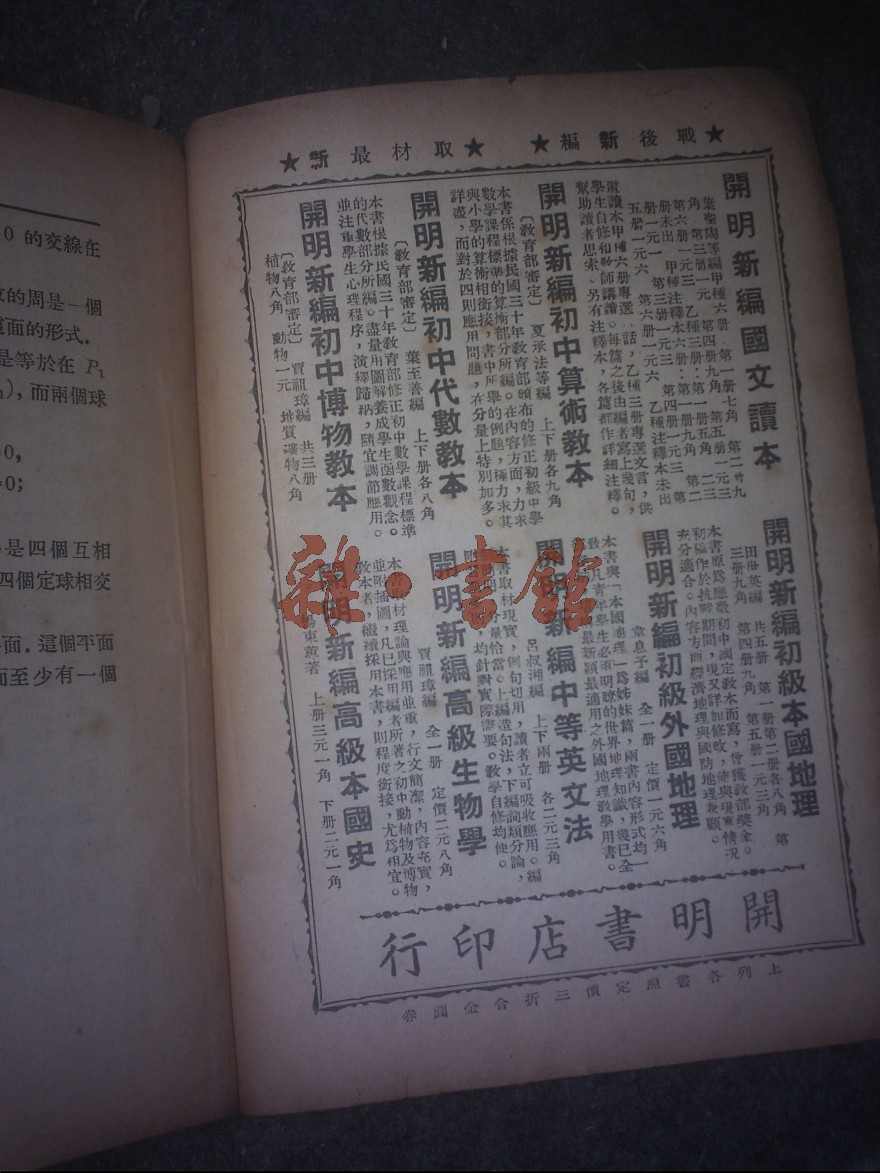 0 的交線在
的周是一個
面的形式．
是等於在 P₁
，而兩個球
0，
=0；
是四個互相
四個定球相交
面．這個平面
面至少有一個
★戰後新編★　★取材最新★
開明新編國文讀本
葉聖陶等編 甲種六册：第一册七角 第二册九
角 第三册一元 第四册九角 第五册一元三
第六册一元三 乙種三册：第一册五角 二三
册未出 甲種注釋本六册：第一册九角 第二
册一元一 第三册一元六 第四册一元三 第
五册一元六 第六册一元六 乙種注釋本未出
這讀本甲種六册專選白話，乙種三册專選文言，供
學生自修和教師講讀。每篇之後由編者寫上幾句，
幫助讀者思索。另有注釋本，各篇都作詳細注釋。
開明新編初中算術教本
〔教育部審定〕 夏承法等編 上下册各九角
本書係根據民國三十年教育部頒布的修正初級中學
數學課程標準的算術部分所編。在內容方面，力求
與小學的算術相銜接，書中所舉的例題，極力求其
詳盡，而對於四則應用問題，在分量上特別加多。
開明新編初中代數教本
〔教育部審定〕 葉至善編 上下册各八角
本書根據民國三十年教育部修正初中數學課程標準
的代數部分所編。盡量用圖解養成學生函數觀念。
並注重學生心理程序，演繹歸納，隨宜調節應用。
開明新編初中博物教本
〔教育部審定〕 賈祖璋編 共三册
植物八角 動物一元 地質礦物八角
開明新編初級本國地理
田世英編 共五册 第一册第二册各八角 第
三册九角 第四册九角 第五册一元三角
本書原爲應徵初中國定教本而寫，曾獲教部獎金。
初稿作於抗戰期間，現又詳加修改，使與現實情況
充分適合。內容方面經濟地理與國防地理兼顧。
開明新編初級外國地理
韋息予編 全一册 定價一元六角
本書與「本國地理」爲姊妹篇，兩書內容形式均一
致。凡青年學生必須明瞭的世界地理知識，幾已全
最新穎最適用之外國地理教學用書。
開明新編中等英文法
呂叔湘編 上下兩册 各二元三角
本書取材現實，例句切用，讀者立可吸收應用。編
分量恰當。上編造句法，下編詞類分論，
均針對實際需要。教學自修均便。
開明新編高級生物學
賈祖璋編 全一册 定價二元八角
本書取材理論與應用並重，行文簡潔，內容充實，
並附插圖，凡已採用編者所著之初中動植物及博物
教本者，繼續採用本書，則程度銜接，尤爲相宜。
開明新編高級本國史
楊東蓴著 上册三元一角 下册二元一角
開明書店印行
上列各書照定價三折合金圓券
雜·書館